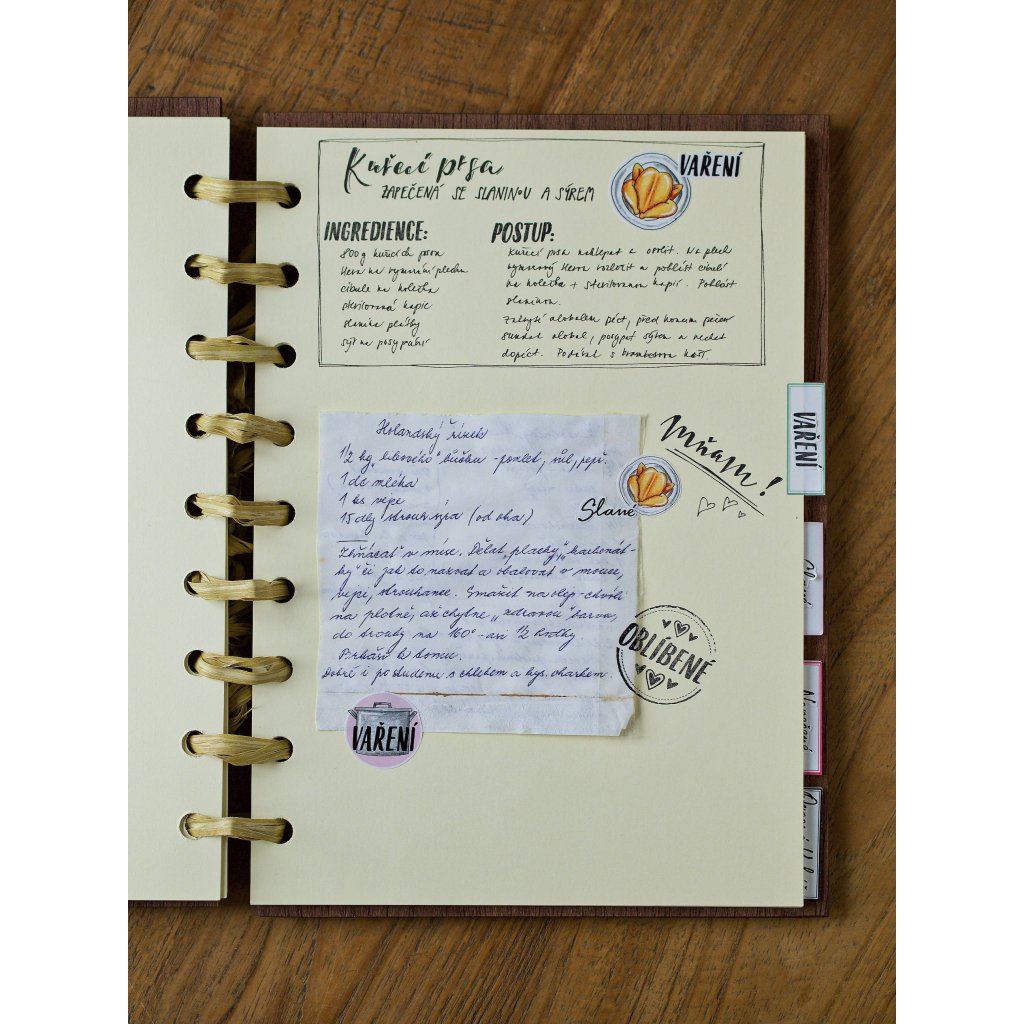 Kuřecí prsa
ZAPEČENÁ SE SLANINOU A SÝREM
VAŘENÍ
INGREDIENCE:
800g kuřecích prsou
cibule na kolečka
sterilovaná kapie
slanina plátky
sýr na posypání
POSTUP:
Kuřecí prsa naklepat a osolit. Na plech
vymazaný Herou rozložit a poklást cibulí
na kolečka + sterilovanou kapií. Poklást
slaninou.
Zakrýt alobalem péct, před koncem pečení
sundat alobal, posypat sýrem a nechat
dopéct. Podávat s bramborovou kaší.
VAŘENÍ
Mňam!
Holandský řízek
1/2 kg "libového" bůčku - pomlet, sůl, pepř.
1 dc mléka
1 ks vejce
15 dkg strouh. sýra (od oka)
Slané
v míse. Dělat "placky", "karbonát-
ky" či jak to nazvat a obalovat v mouce,
vejci, strouhance. Smažit na oleji - chvíli
na plotně, až chytne "zdravou" barvu,
do trouby na 160° - asi 1/2 hodky.
B. kaši k tomu.
Dobré i po studenu s chlebem a kys. okurkem.
OBLÍBENÉ
VAŘENÍ